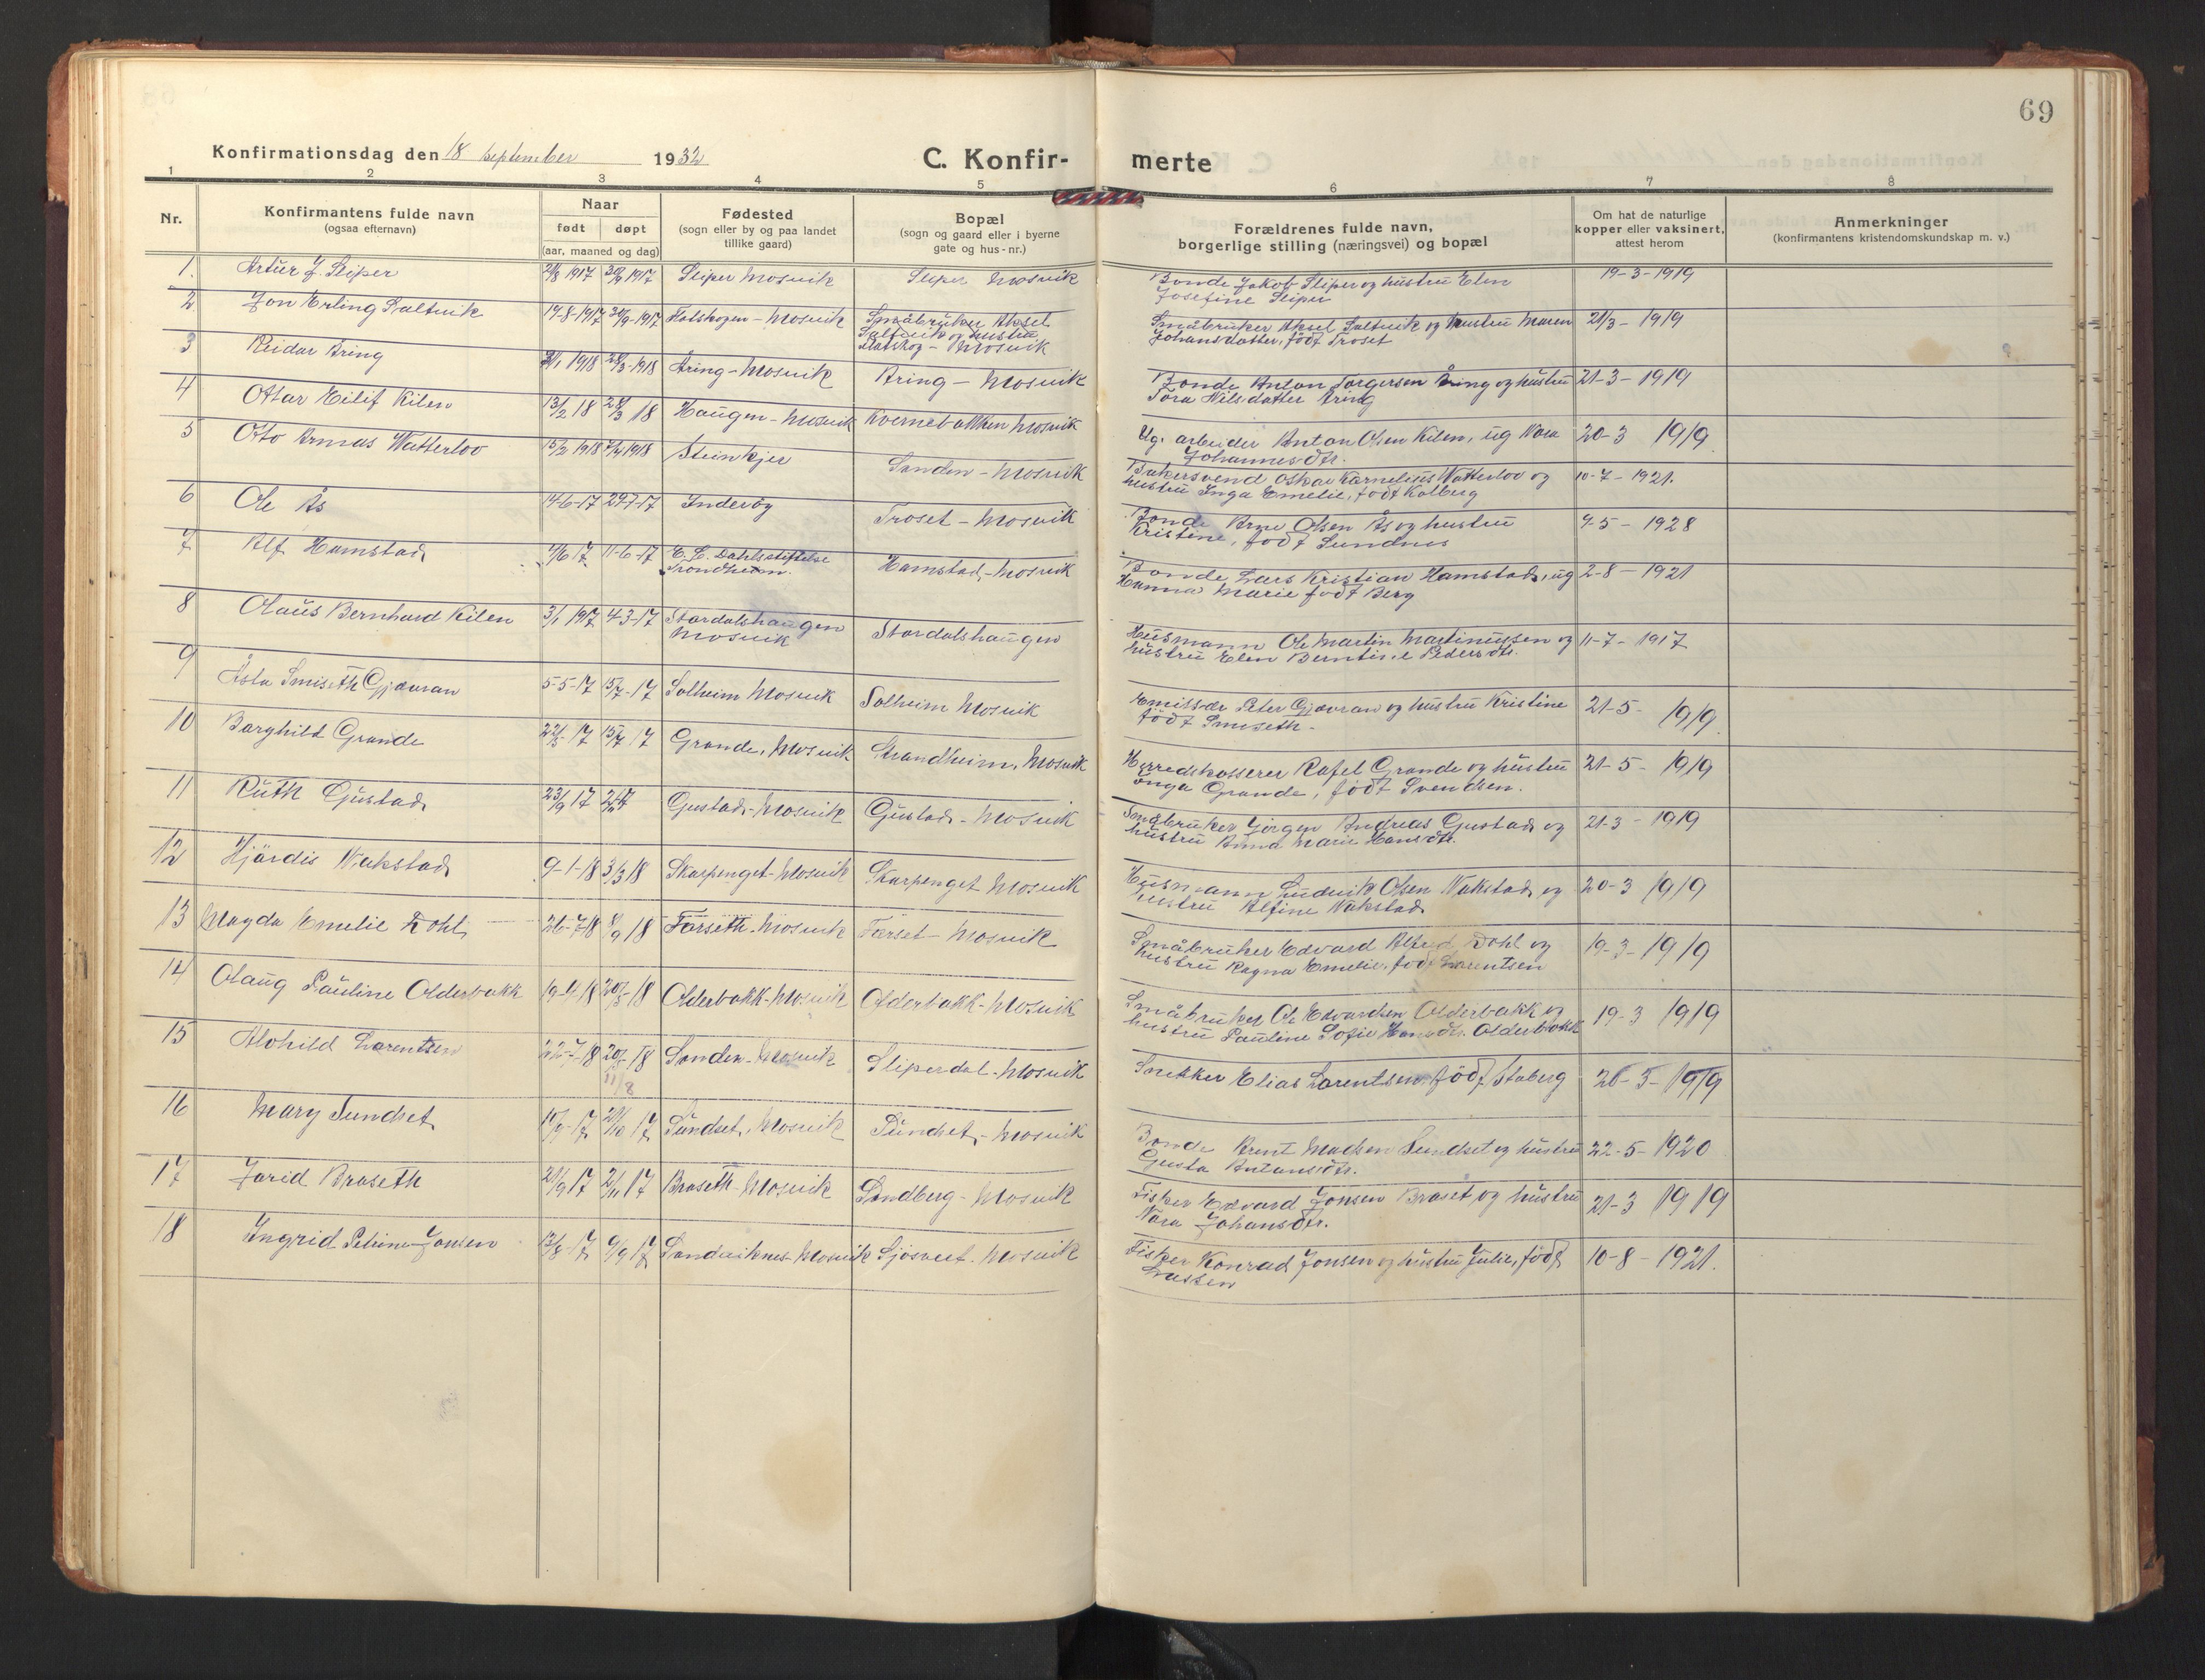 69
Konfirmationsdag den 18 september 1932
C. Konfir-
merte
1 2 3 4 5 6 7 8
Nr.
Konfirmantens fulde navn
(ogsaa efternavn)
Naar
født døpt
(aar, maaned og dag)
Fødested
(sogn eller by og paa landet
tillike gaard)
Bopæl
(sogn og gaard eller i byerne
gate og hus-nr.)
Forældrenes fulde navn,
borgerlige stilling (næringsvei) og bopæl
Om hat de naturlige
kopper eller vaksinert,
attest herom
Anmerkninger
(konfirmantens kristendomskundskap m. v.)
1. Artur J. Sliper 1917 1917 Sliper Mosvik Sliper Mosvik Bonde Jakob Sliper og hustru Elen 19-3-1919
Josefine Sliper
2 Jon Erling Saltvik 14-8-1917 -1917 Flatskogen-Mosvik Småbruker Aksel Småbruker Aksel Saltvik og hustru Maren 21/3-1919
Saltvik og hustru Johansdatter, född Troset
Flatskog-Mosvik
3 Reidar Aring 1918 28/3-1918 Åring-Mosvik Aring-Mosvik Bonde Anton Torgersen Åring og hustru 21-3-1919
Tora Nilsdatter Aring
4 Ottar Eilif Kilen 13/2 18 28/3 18 Haugen-Mosvik Kvernebakken Mosvik Ug. arbeider Anton Olsen Kilen, ug Nora 20-3 1919
Johannesdtr.
5 Otto Armas Watterloo 15/2 1918 1918 Steinkjer Sanden-Mosvik Bakersvend Oskar Kornelius Watterloo og 10-7-1921.
hustru Inga Emelie, född Kolberg
6 Ole Ås 14-6-17 29-7-17 Inderöy Troset-Mosvik Bonde Arne Olsen Ås og hustru 4-5-1928
Kristine, född Sundnes
7 Alf Hamstad 17 11-6-17 E. C. Dahlsstiftelse Hamstad-Mosvik Bonde Lars Kristian Hamstad, ug 2-8-1921
Trondheim. Hanna Marie född Berg
8 Olaus Bernhard Kilen 3/1 1917 4-3-17 Stordalshaugen Stordalshaugen Husmann Ole Martin Martinussen og 11-7-1917
Mosvik hustru Elen Berntine Pedersdtr.
9 Åsta Smiseth Gjævran 5-5-17 15/7-17 Solheim Mosvik Solheim Mosvik Emissær Peter Gjævran og hustru Kristine 21-5-1919.
född Smiseth.
10 Borghild Grande 22/5-17 15/7 17 Grande, Mosvik Strandheim, Mosvik Herredskasserer Rafel Grande og hustru 21-5-1919
Inga Grande, född Svendsen.
11 Ruth Gustad 23/9 17 Gustad-Mosvik Gustad-Mosvik Småbruker Jörgen Andreas Gustad og 21-3-1919
hustru Anna Marie Hansdtr.
12 Hjördis Nakstad 9-1-18 3/3 18 Skarpenget-Mosvik Skarpenget Mosvik Husmann Ludvik Olsen Nakstad og 20-3 1919
hustru Alfine Nakstad
13 Magda Emelie Dohl 26-7-18 8/9 18 Förseth-Mosvik Förset-Mosvik Småbruker Edvard Alfred Dohl og 19-3-1919
hustru Ragna Emelie, född Lorentsen
14 Olaug Pauline Olderbakk 19-4-18 20/5-18 Olderbakk-Mosvik Olderbakk-Mosvik Småbruker Ole Edvardsen Olderbakk og 19-3 1919
hustru Pauline Sofie Hansdtr. Olderbakk
15 Alvhild Lorentsen 22-7-18 20/5-18 Sanden-Mosvik Sliperdal-Mosvik Snekker Elias Lorentsen, född Staberg 26-5-1919
11/8
16 Mary Sundset 17 17 Sundset, Mosvik Sundset-Mosvik Bonde Arnt Madsen Sundset og hustru 22-5-1920
Gusta Antonsdtr.
17 Jorid Braseth 21/9 17 2/11 17 Braseth-Mosvik Sandberg-Mosvik Fisker Edvard Jonsen Braset og hustru 21-3 1919
Nora Johansdtr.
18 Ingrid Petrine Jonsen 13/8-17 9/9 17 Sandviknes-Mosvik Sjösveet-Mosvik Fisker Konrad Jonsen og hustru Julie, född 10-8-1921.
Lassen